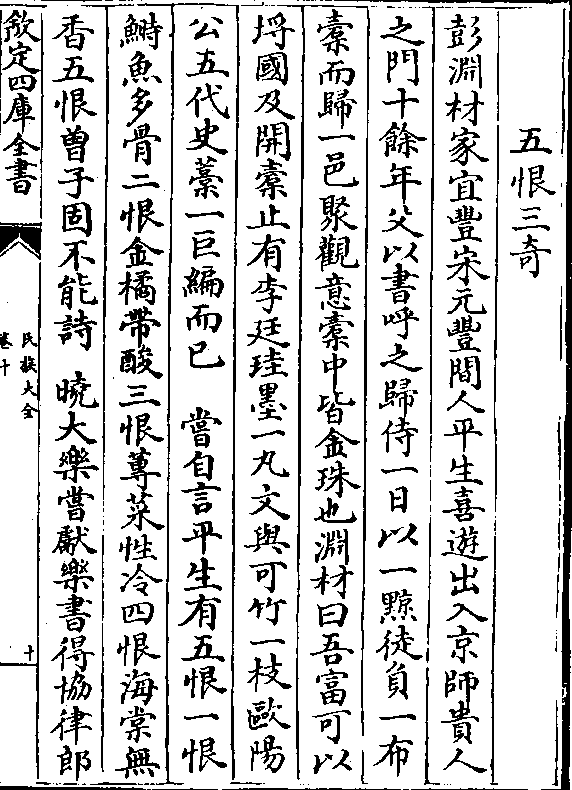 五恨三奇
彭淵材家宜豐宋元豐間人平生喜遊出入京師貴人
之門十餘年父以書呼之歸侍一日以一黥徒負一布
橐而歸一邑聚觀意橐中皆金珠也淵材曰吾富可以
埒國及開橐止有李廷珪墨一丸文與可竹一枝歐陽
公五代史藁一巨編而已　嘗自言平生有五恨一恨
鰣魚多骨二恨金橘帶酸三恨蓴菜性冷四恨海棠無
香五恨曾子固不能詩　曉大樂嘗獻樂書得協律郎
欽定四庫全書
氏族大全
卷十
十